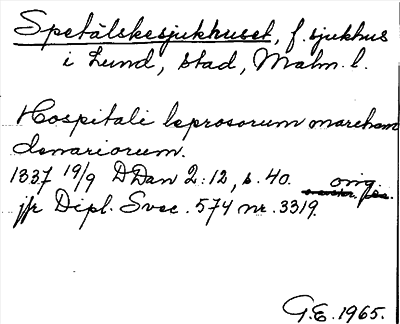 Spetälskesjukhuset, f. sjukhus
i Lund, stad, Malm. l.
Hospitali leprosorum marcham
denariorum.
1337 19/9 DDan 2:12, s. 40. orig
jfr Dipl. Svec. 574 nr. 3319.
G.E. 1965.